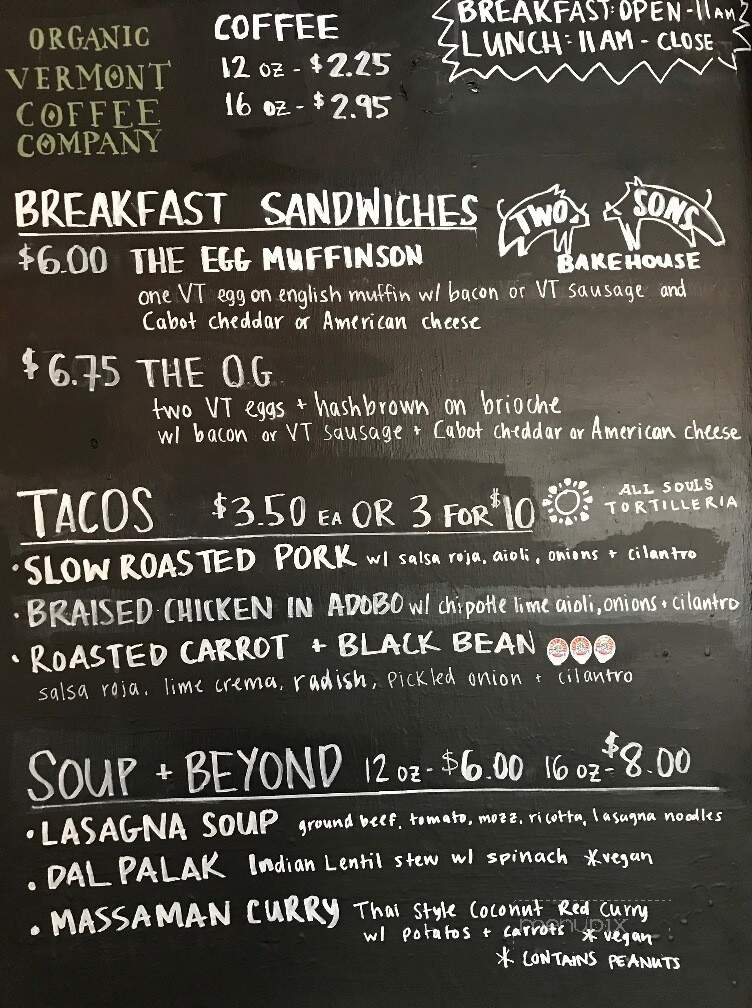 ORGANIC
VERMONT
COFFEE
COMPANY
COFFEE
12 oz - $2.25
16 oz - $2.95
BREAKFAST: OPEN - 11 AM
LUNCH: 11 AM - CLOSE
BREAKFAST SANDWICHES
TWO SONS
BAKEHOUSE
$6.00 THE EGG MUFFINSON
one VT egg on english muffin w/ bacon or VT sausage and
Cabot cheddar or American cheese
$6.75 THE O.G.
two VT eggs + hashbrown on brioche
w/ bacon or VT sausage + Cabot cheddar or American cheese
TACOS $3.50 EA OR 3 FOR $10
ALL SOULS
TORTILLERIA
• SLOW ROASTED PORK w/ salsa roja, aioli, onions + cilantro
• BRAISED CHICKEN IN ADOBO w/ chipotle lime aioli, onions + cilantro
• ROASTED CARROT + BLACK BEAN
salsa roja, lime crema, radish, pickled onion + cilantro
SOUP + BEYOND 12 oz - $6.00 16 oz - $8.00
• LASAGNA SOUP ground beef, tomato, mozz, ricotta, lasagna noodles
• DAL PALAK Indian Lentil stew w/ spinach *vegan
• MASSAMAN CURRY Thai Style Coconut Red Curry
w/ potatos + carrots *vegan
* CONTAINS PEANUTS
menupix